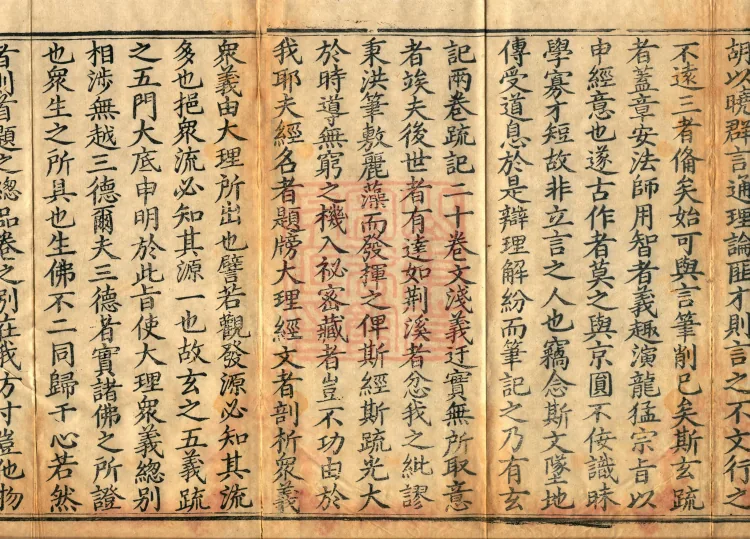 胡以曉群言通理論匪才則言之不文行之
不遠三者俻矣始可與言筆削已矣斯玄疏
者蓋章安法師用智者義趣演龍猛宗旨以
申經意也遂古作者莫之與京圓不佞識昧
學寡才短故非立言之人也竊念斯文墜地
傳受道息於是辯理解紛而筆記之乃有玄
記兩卷疏記二十卷文淺義迂實無所取意
者竢夫後世者有達如荆溪者忿我之紕謬
秉洪筆敷麗藻而發揮之俾斯經斯疏光大
於時導無窮之機入祕密藏者豈不功由於
我耶夫經名者題牓大理經文者剖析衆義
衆義由大理所出也譬若觀發源必知其流
多也挹衆流必知其源一也故玄之五義疏
之五門大底申明於此旨使大理衆義緫別
相涉無越三德爾夫三德者實諸佛之所證
也衆生之所具也生佛不二同歸于心若然
者則首題之緫品卷之别在我方寸豈他物